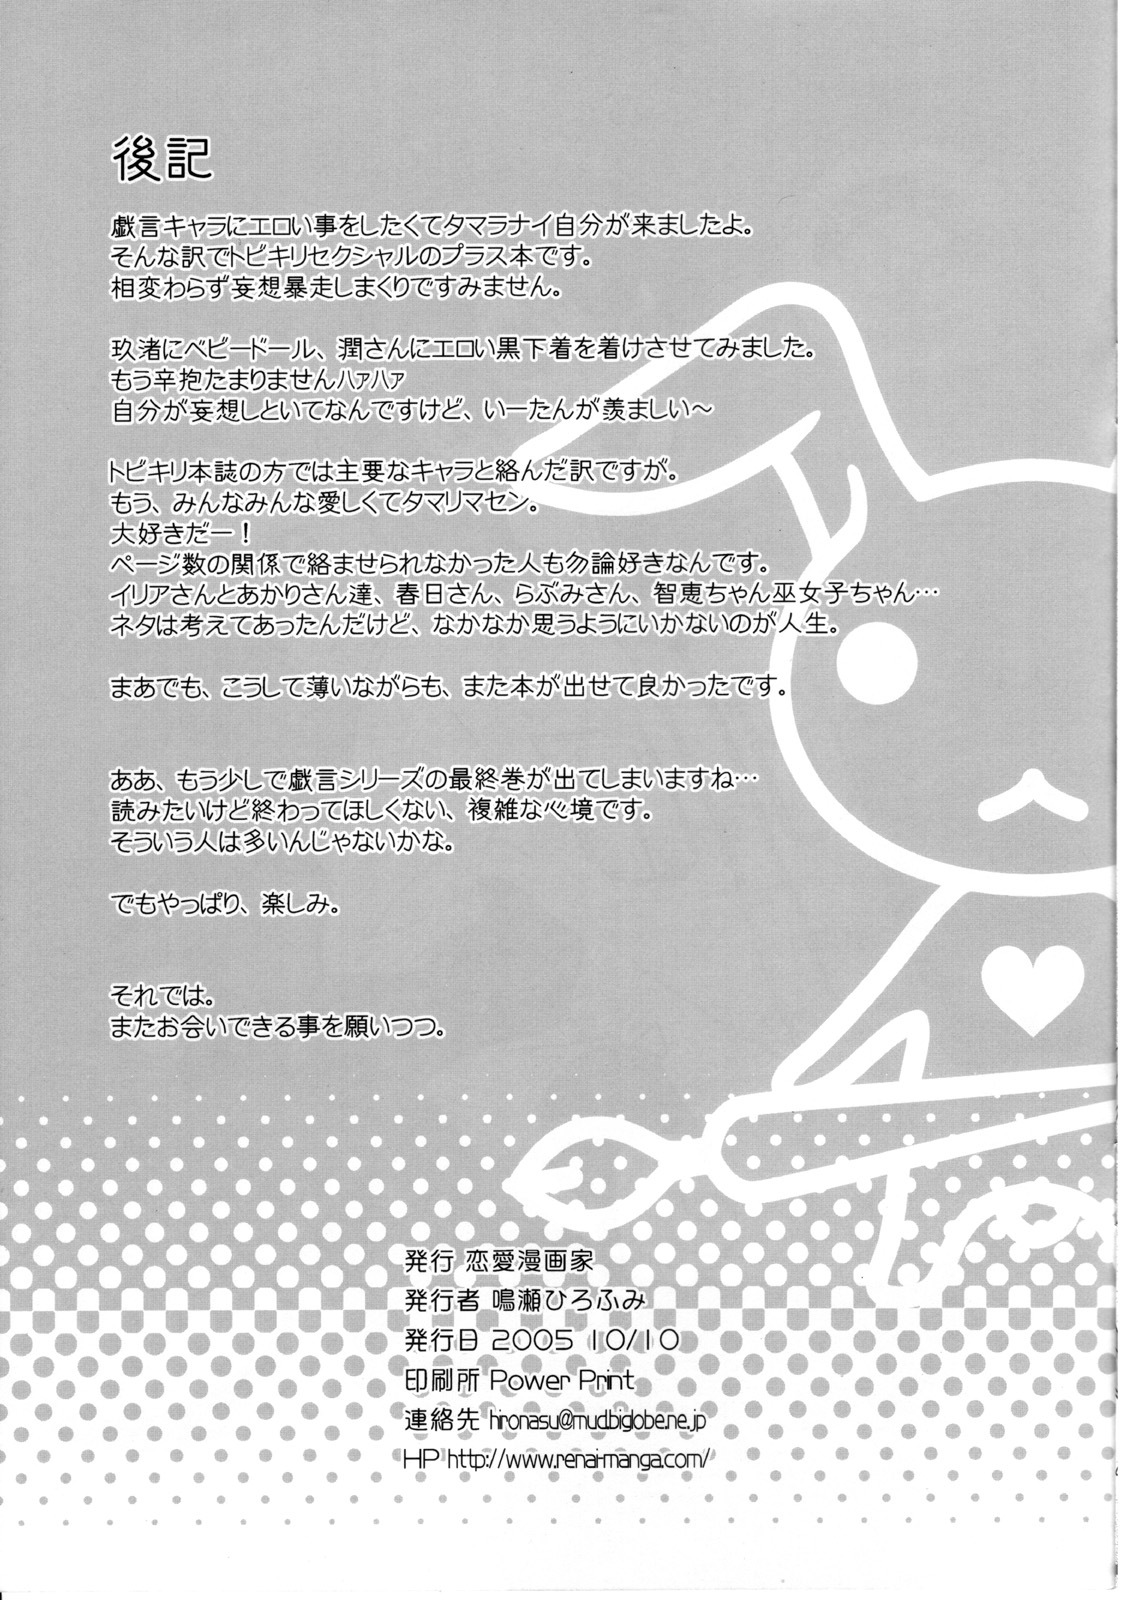 後記
戯言キャラにエロい事をしたくてタマラナイ自分が来ましたよ。
そんな訳でトビキリセクシャルのプラス本です。
相変わらず妄想暴走しまくりですみません。
玖渚にベビードール、潤さんにエロい黒下着を着けさせてみました。
もう辛抱たまりませんﾊｧﾊｧ
自分が妄想しといてなんですけど、いーたんが羨ましい～
トビキリ本誌の方では主要なキャラと絡んだ訳ですが。
もう、みんなみんな愛しくてタマリマセン。
大好きだー！
ページ数の関係で絡ませられなかった人も勿論好きなんです。
イリアさんとあかりさん達、春日さん、らぶみさん、智恵ちゃん巫女子ちゃん…
ネタは考えてあったんだけど、なかなか思うようにいかないのが人生。
まあでも、こうして薄いながらも、また本が出せて良かったです。
ああ、もう少しで戯言シリーズの最終巻が出てしまいますね…
読みたいけど終わってほしくない、複雑な心境です。
そういう人は多いんじゃないかな。
でもやっぱり、楽しみ。
それでは。
またお会いできる事を願いつつ。
発行 恋愛漫画家
発行者 鳴瀬ひろふみ
発行日 2005 10/10
印刷所 Power Print
連絡先 hironasu@mud.biglobe.ne.jp
HP http://www.renai-manga.com/